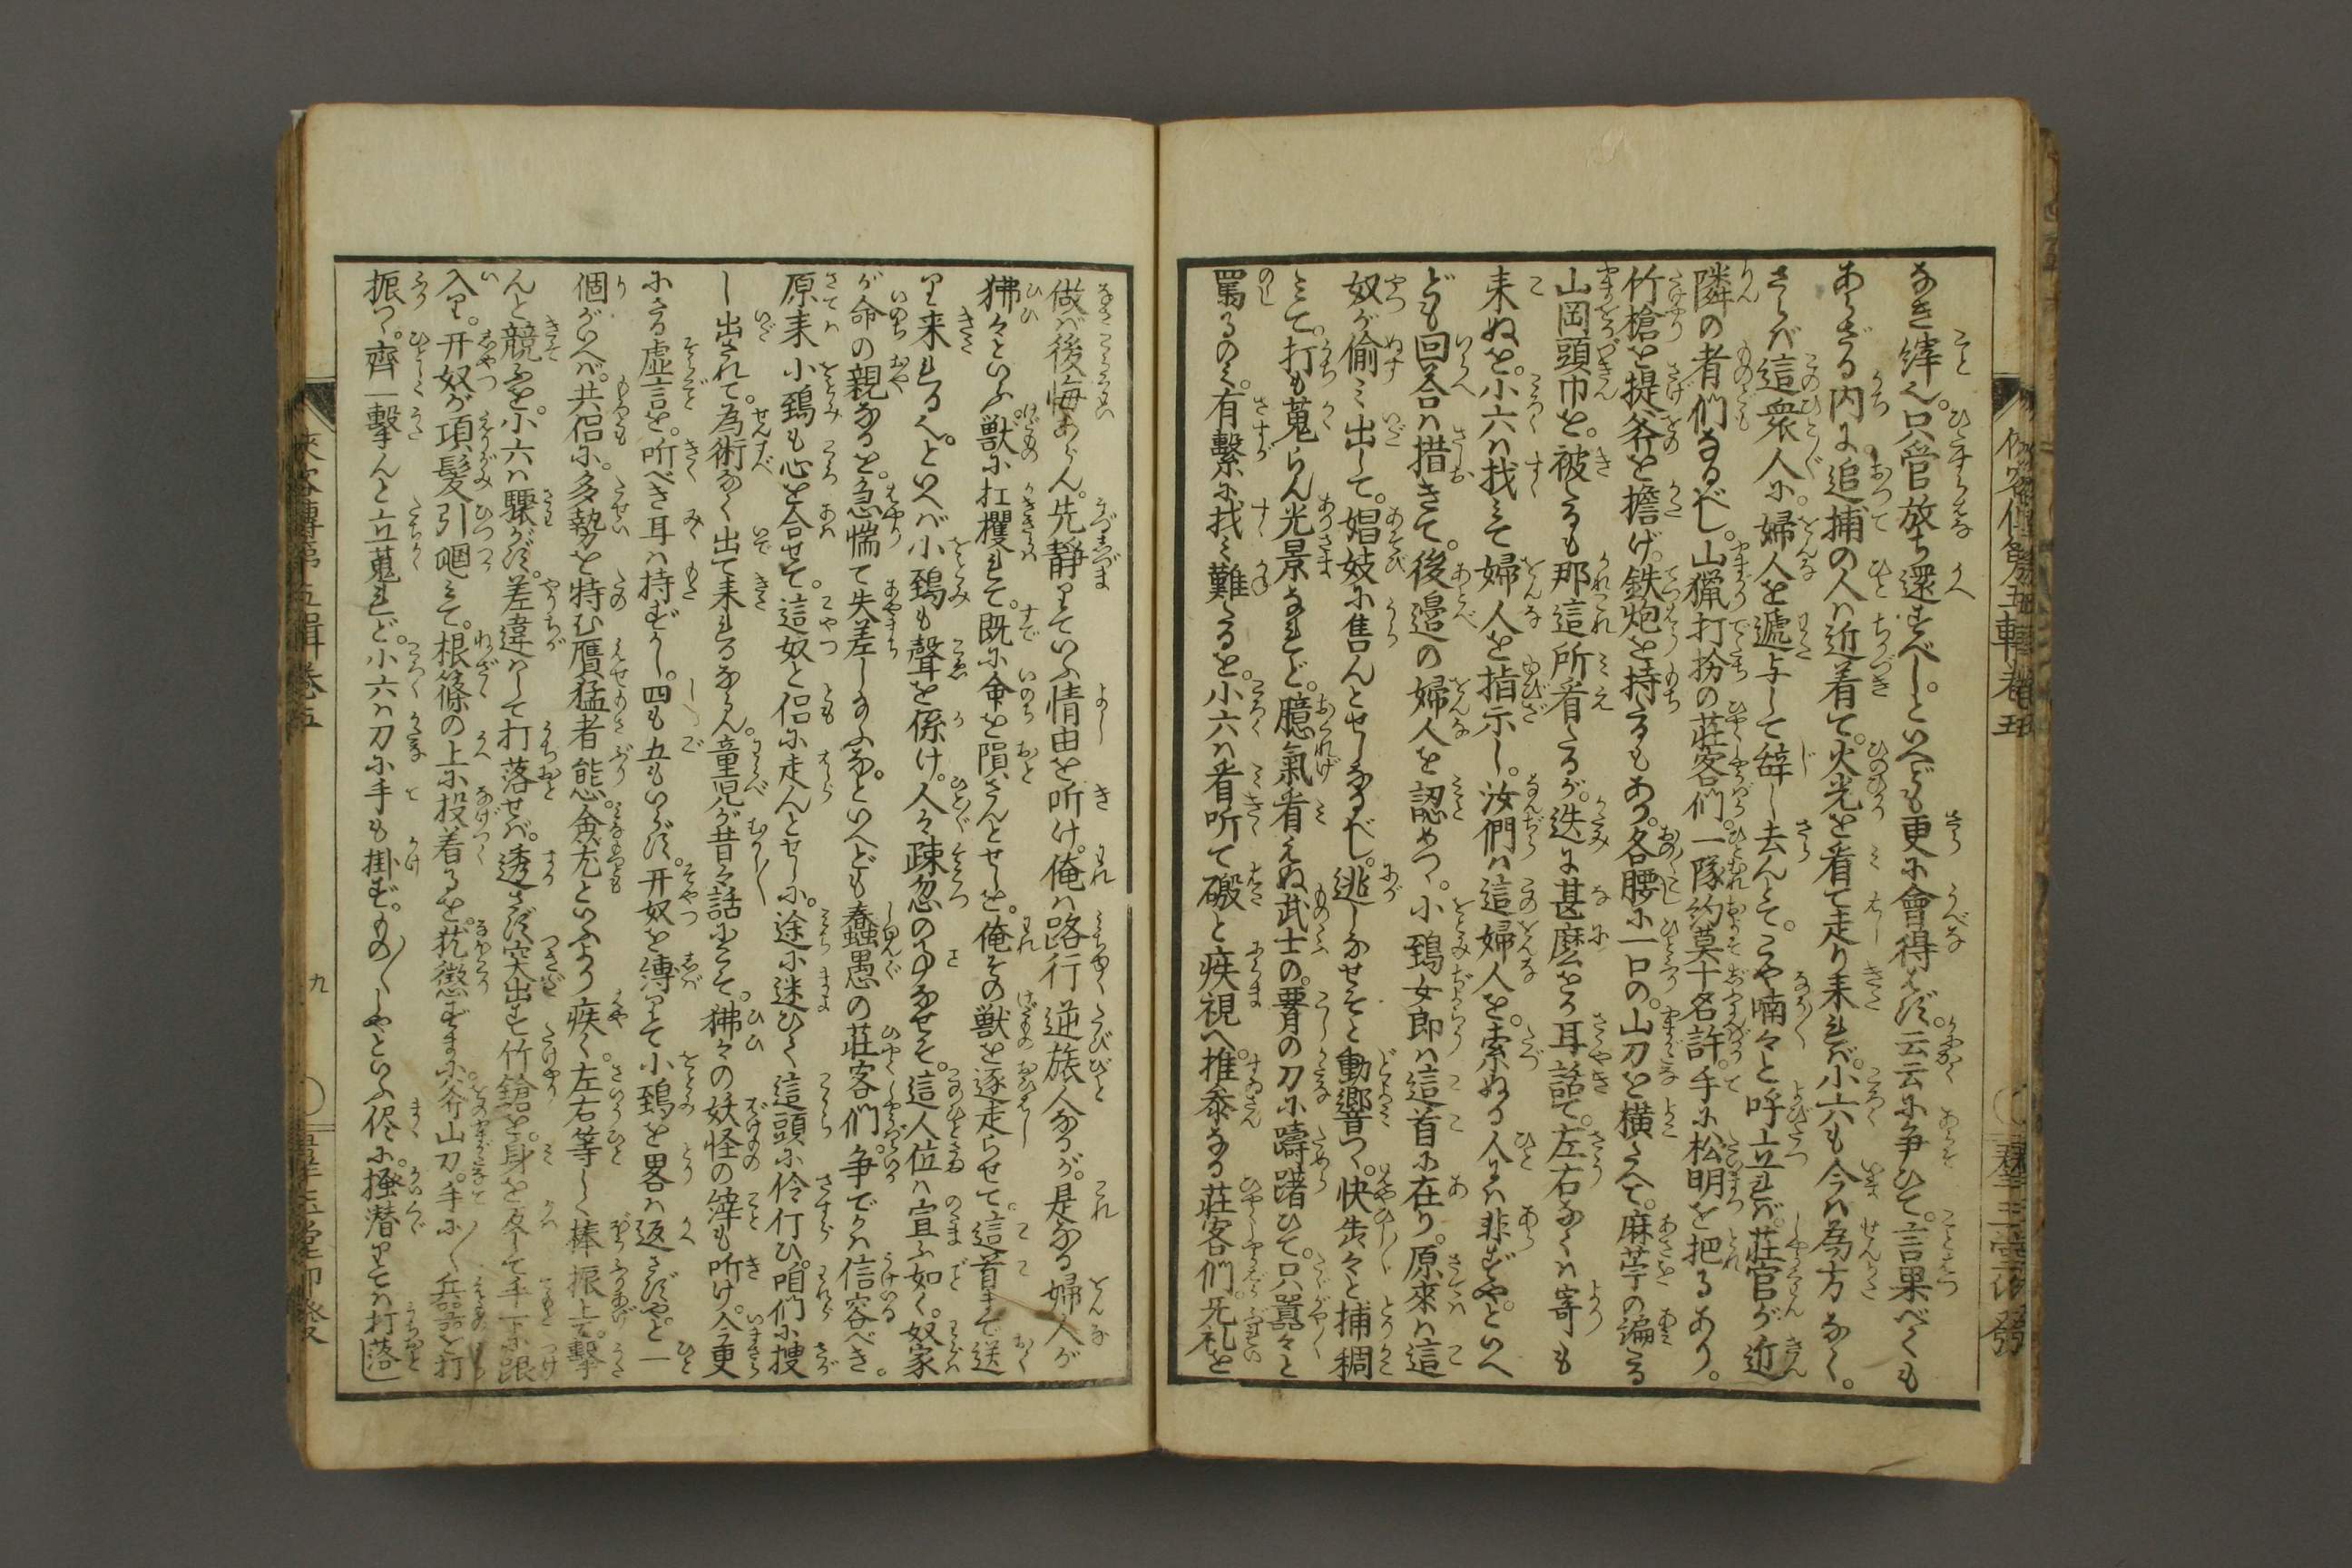 なき縡ん。只管放ち還すべし。といへども更に會得せず。云云に争ひて。言果べくも
あらざる内に。追捕の人は近着て。火光を看て走り来れば。小六も今は為方なく。
さらば這衆人に。婦人を遞与して辞し去んとて。こや喃々と呼立れば。莊官が近
隣の者們なるべし。山猟打扮の莊客們。一隊約莫十名許。手に松明を把るあり。
竹槍を提斧を擔げ。鉄炮を持るもあり。各腰に一口の。山刀を横たへて。麻苧の編たる
山岡頭巾を。被たるも那這所看たるが。迭に甚麼をか耳語て。左右なくは寄も
来ぬを。小六は找みて婦人を指示し。汝們は這婦人を。索ぬる人には非ずや。といへ
ども回荅は措きて。後邉の婦人を認めつゝ。小鵐女郎は這首に在り。原來は這
奴が偷み出して。娼妓に售んとせしなるべし。逃しなせそと動響つゝ。快告々と捕稠
みて。打も蒐らん光景なれど。臆氣看えぬ武士の。腰の刀に躊躇ひて。只囂々と
罵るのミ。有繋に找み難たるを。小六は看听て礑と疾視へ。推参なる莊客們。无礼を
做ば後悔あらん。先靜りていふ情由を听け。俺は路行逆旅人なるが。是なる婦人が
狒々といふ。獣に扛攫れて。既に命を隕さんとせしを。俺その獣を逐走らせて。這首まで送
り来れるへ。といへば小鵐も聲を係け。人々疎忽のゆなせそ。這人位は宣ふ如く。奴家
が命の親なるを。急惴て失差しのふな。といへども蠢愚の莊客們。争でかは信容べき。
原来小鵐も心を合せて。這奴と侶に走んとせしに。途に迷ひて這頭に伶仃ひ。咱們に捜
し出されて。為術なく出て来れるならん。童児が昔々話にして。狒々の妖怪の縡も听け。今更
にさる虚言を。听べき耳は持ずかし。四も五もいらず。开奴を縛りて小鵐を畧は返さずや。と一
個がいへば。共侶に。多勢を特む贋猛者態。僉尤といふより疾く。左右等しく棒振上て撃
んと競ふを。小六は騒がず。差違はして打落せば。透さず突出す竹鎗を。身を反して手下に跟
入り。开奴が項髪引𢌞みて。根篠の上に投着るを。尚懲ずまに。斧山刀。手に/\兵噐を打
振つゝ。齊一撃んと立蒐れど。小六は刀に手も掛ず。もの/\しやといふ侭に。掻潜りては打落し
俠客傳第五輯卷五
九
俠客傳第五輯卷五